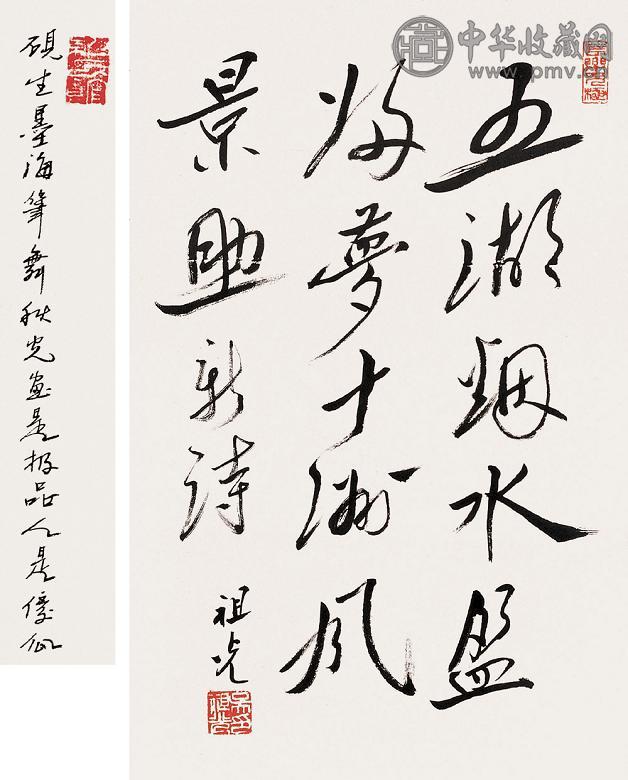 中华收藏网
www.pmv.cn
五湖烟水盈
归夢十洲風
景助新诗
祖光
硯生墨海笔舞秋光画是极品人是傻瓜